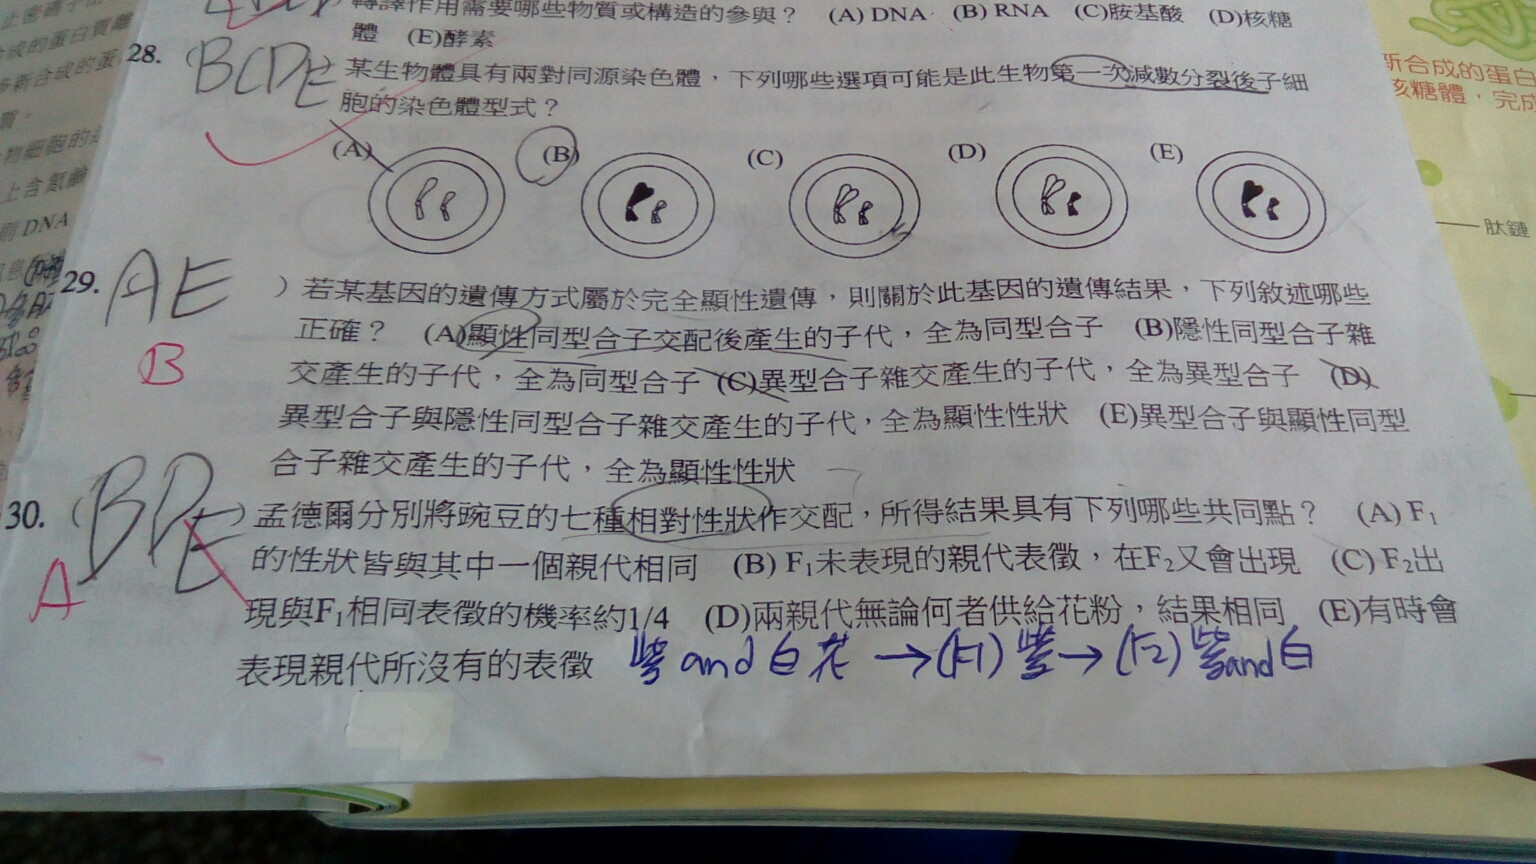 轉譯作用需要哪些物質或構造的參與？ (A) DNA (B) RNA (C)胺基酸 (D)核糖
體 (E)酵素
28. BCDE 某生物體具有兩對同源染色體，下列哪些選項可能是此生物第一次減數分裂後子細
胞的染色體型式？
(A) (B) (C) (D) (E)
29. AE ）若某基因的遺傳方式屬於完全顯性遺傳，則關於此基因的遺傳結果，下列敘述哪些
正確？ (A)顯性同型合子交配後產生的子代，全為同型合子 (B)隱性同型合子雜
B
交產生的子代，全為同型合子 (C)異型合子雜交產生的子代，全為異型合子 (D)
異型合子與隱性同型合子雜交產生的子代，全為顯性性狀 (E)異型合子與顯性同型
合子雜交產生的子代，全為顯性性狀
30. (BDE) 孟德爾分別將豌豆的七種相對性狀作交配，所得結果具有下列哪些共同點？ (A) F₁
的性狀皆與其中一個親代相同 (B) F₁未表現的親代表徵，在F₂又會出現 (C) F₂出
A
現與F₁相同表徵的機率約1/4 (D)兩親代無論何者供給花粉，結果相同 (E)有時會
表現親代所沒有的表徵 紫 and 白花 →(F1) 紫→ (F2) 紫and白
新合成的蛋白
核糖體，完成
肽鏈
合成的蛋白質離
新合成的蛋
質。
物細胞的
上含氮鹼
則 DNA